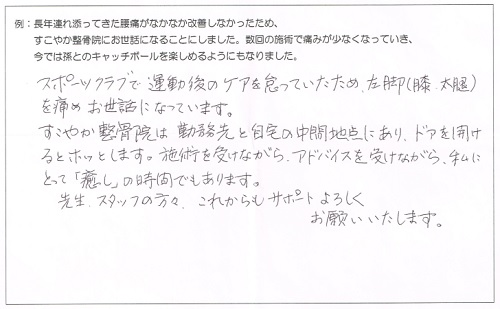 例：長年連れ添ってきた腰痛がなかなか改善しなかったため、
すこやか整骨院にお世話になることにしました。数回の施術で痛みが少なくなっていき、
今では孫とのキャッチボールを楽しめるようにもなりました。
スポーツクラブで運動後のケアを怠っていたため、左脚(膝、太腿)
を痛めお世話になっています。
すこやか整骨院は勤務先と自宅の中間地点にあり、ドアを開け
るとホッとします。施術を受けながら、アドバイスを受けながら、私に
とって「癒し」の時間でもあります。
先生、スタッフの方々、これからもサポートよろしく
お願いいたします。